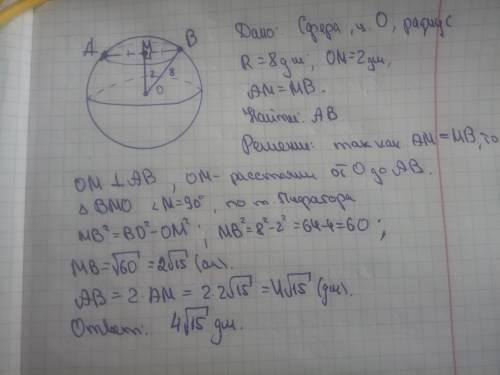 A M B
2 8
O
Дано: Сфера, ц. O, радиус
R = 8 дм; OM = 2 дм,
AM = MB.
Найти: AB
Решение: так как AM = MB, то
OM ⊥ AB, OM - расстояни от O до AB.
Δ BMO ∠M = 90°, по т. Пифагора
MB² = BO² - OM²; MB² = 8² - 2² = 64 - 4 = 60;
MB = √60 = 2√15 (см).
AB = 2 · AM = 2 · 2√15 = 4√15 (дм).
Ответ: 4√15 дм.